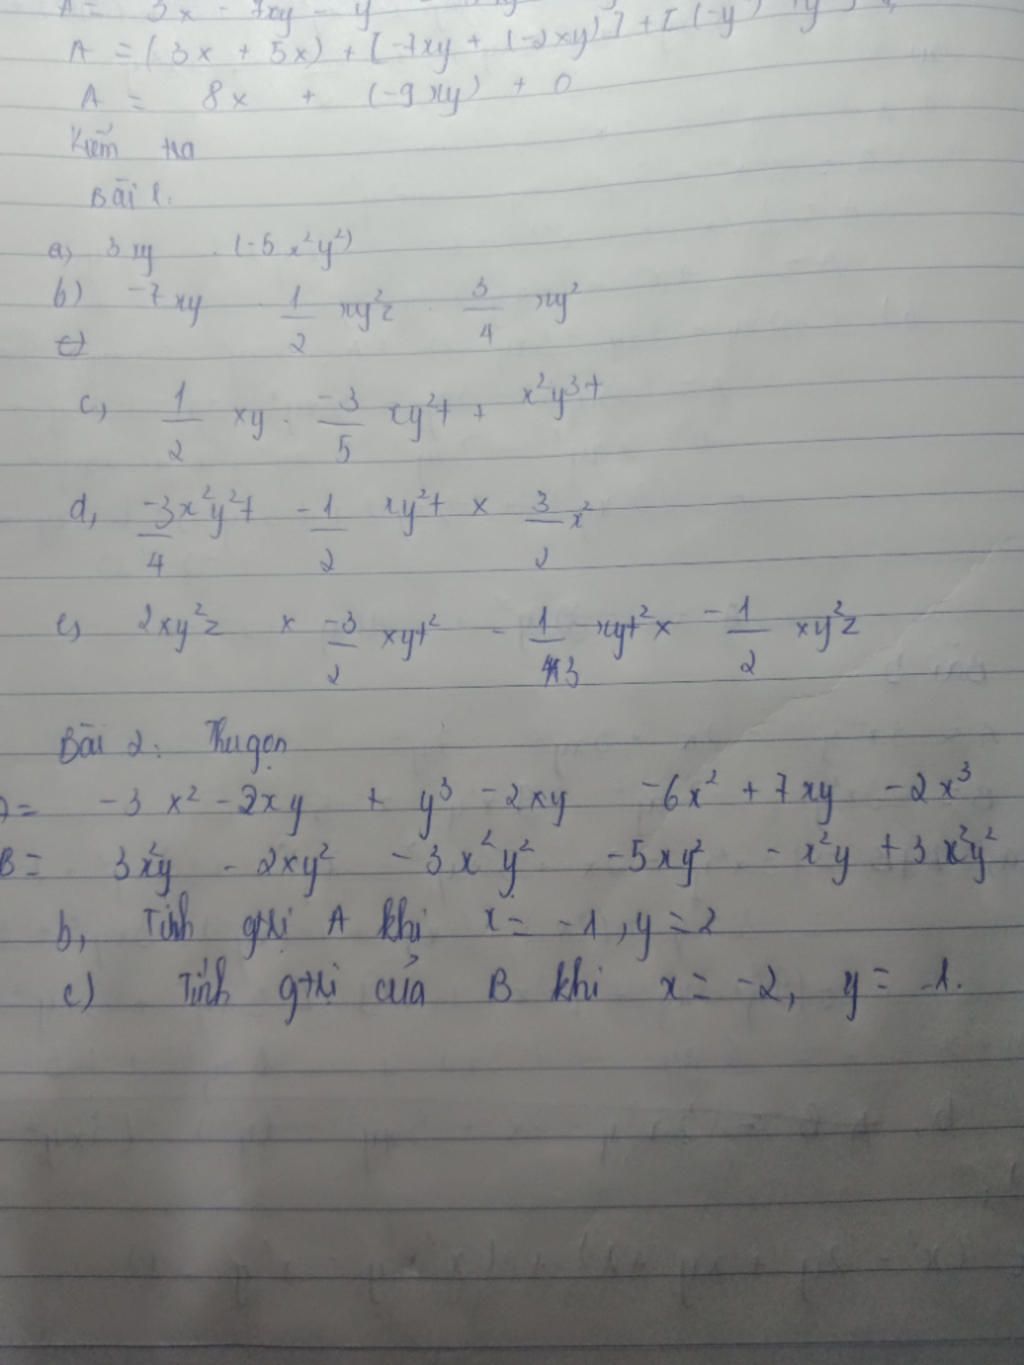 A = 3x - 7xy - y
A = (3x + 5x) + [-7xy + (-2xy)] + [(-y
A = 8x + (-9xy) + 0
Kiểm tra
Bài 1.
a, 3xy . (-5x²y²)
b) -7xy . 1/2 xy²z . 3/4 xy²
c)
c, 1/2 xy . -3/5 xy²t + x²y³t
d, -3/4 x²y²t -1/2 xy²t x 3/2 x²
e, 2xy²z x -3/2 xyt² - 1/3 xyt² x -1/2 xy²z
Bài 2: Thu gọn
= -3x² - 2xy + y³ - 2xy -6x² + 7xy - 2x³
B = 3x²y - 2xy² - 3x²y² - 5xy² - x²y + 3x²y²
b, Tính gtrị A khi x = -1, y = 2
c) Tính gtrị của B khi x = -2, y = -1.